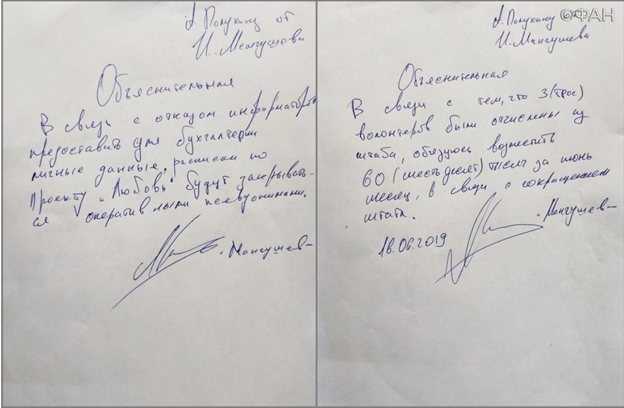 А. Полухину от
И. Мангушева
Объяснительная
В связи с отказом информаторов
предоставить для бухгалтерии
личные данные, расписки по
Проекту "Любовь" будут закрывать-
ся оперативными псевдонимами.
Мангушев
©ФАН
А. Полухину от
И. Мангушева
Объяснительная
В связи с тем, что 3 (трое)
волонтеров были отчислены из
штаба, обязуюсь возместить
60 (шестьдесят) тысяч за июнь
месяц, в связи с сокращением
штата.
18.06.2019
Мангушев